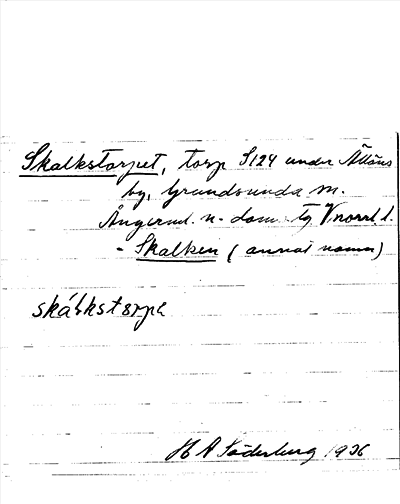 Skalkstorpet, torp S124 under Ällöns
by, Grundsunda sn.
Ångerml. n. dom. tg Vnorrl. l.
- Skalken (annat namn)
skálkstorpe
H A Söderberg 1936